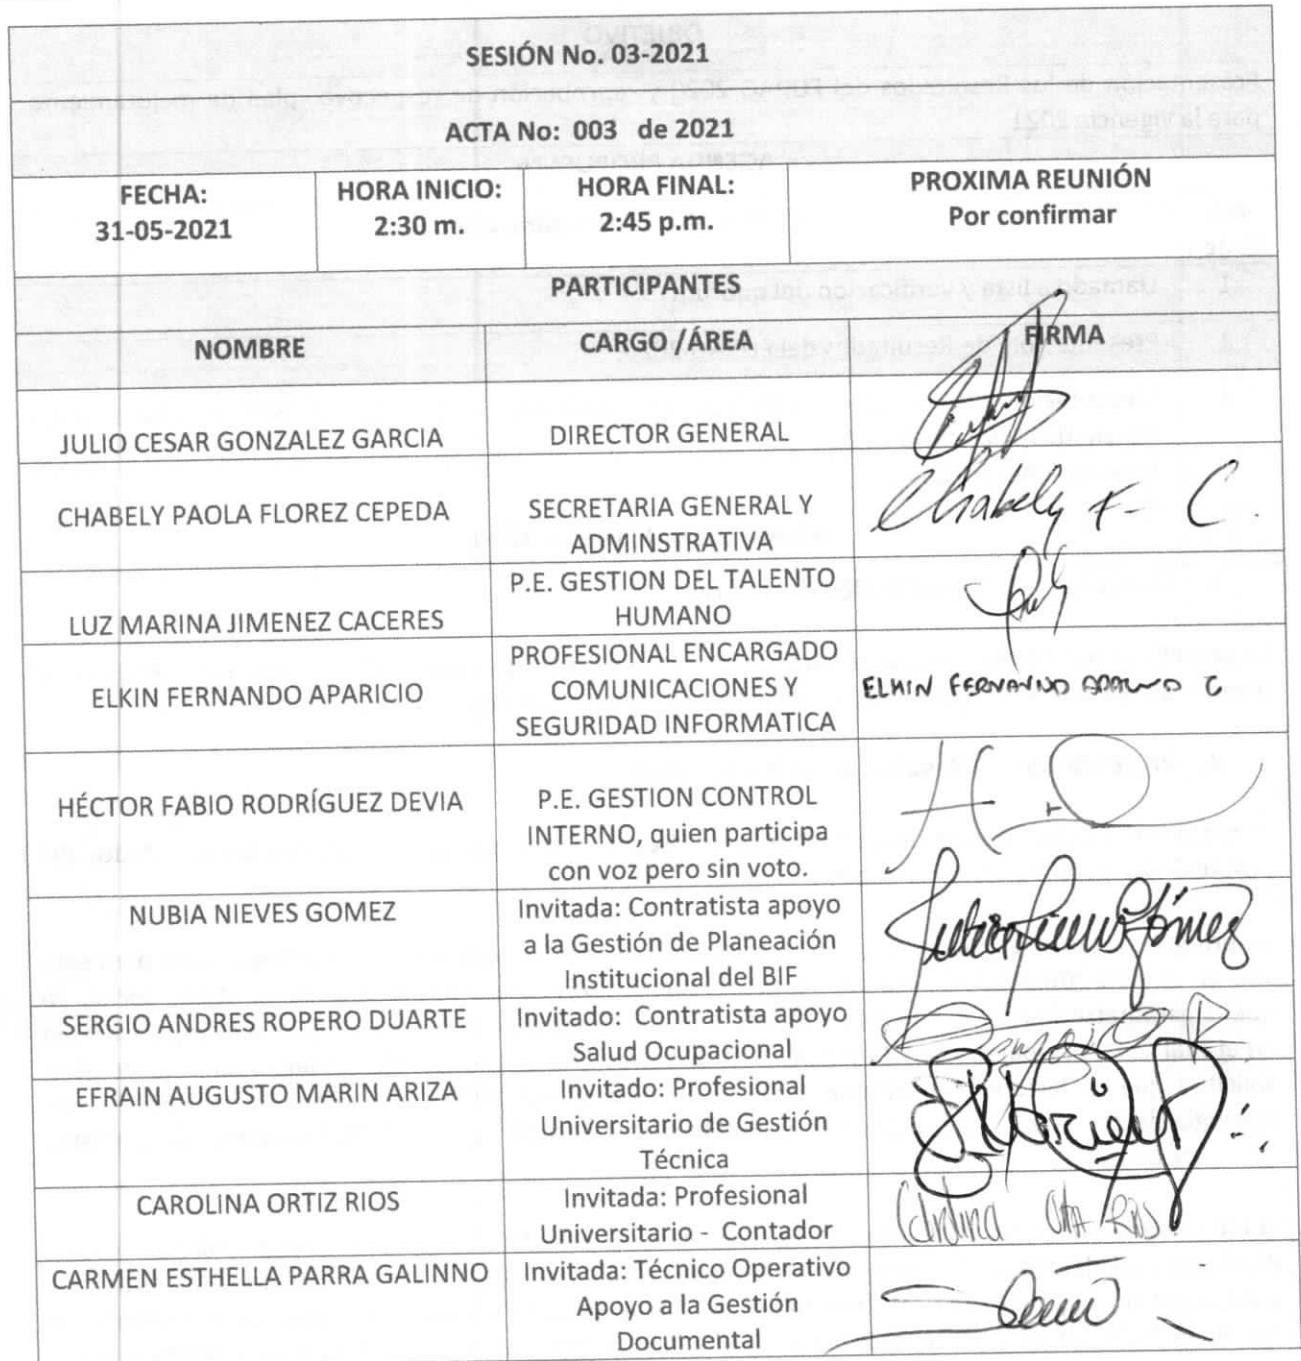 SESIÓN No. 03-2021
ACTA No: 003 de 2021
FECHA:
31-05-2021
HORA INICIO:
2:30 m.
HORA FINAL:
2:45 p.m.
PROXIMA REUNIÓN
Por confirmar
PARTICIPANTES
NOMBRE
CARGO /ÁREA
FIRMA
JULIO CESAR GONZALEZ GARCIA
DIRECTOR GENERAL
CHABELY PAOLA FLOREZ CEPEDA
SECRETARIA GENERAL Y
ADMINSTRATIVA
Chabely F- C.
LUZ MARINA JIMENEZ CACERES
P.E. GESTION DEL TALENTO
HUMANO
ELKIN FERNANDO APARICIO
PROFESIONAL ENCARGADO
COMUNICACIONES Y
SEGURIDAD INFORMATICA
ELKIN FERNANDO
HÉCTOR FABIO RODRÍGUEZ DEVIA
P.E. GESTION CONTROL
INTERNO, quien participa
con voz pero sin voto.
NUBIA NIEVES GOMEZ
Invitada: Contratista apoyo
a la Gestión de Planeación
Institucional del BIF
Gómez
SERGIO ANDRES ROPERO DUARTE
Invitado: Contratista apoyo
Salud Ocupacional
EFRAIN AUGUSTO MARIN ARIZA
Invitado: Profesional
Universitario de Gestión
Técnica
CAROLINA ORTIZ RIOS
Invitada: Profesional
Universitario - Contador
Carolina
CARMEN ESTHELLA PARRA GALINNO
Invitada: Técnico Operativo
Apoyo a la Gestión
Documental